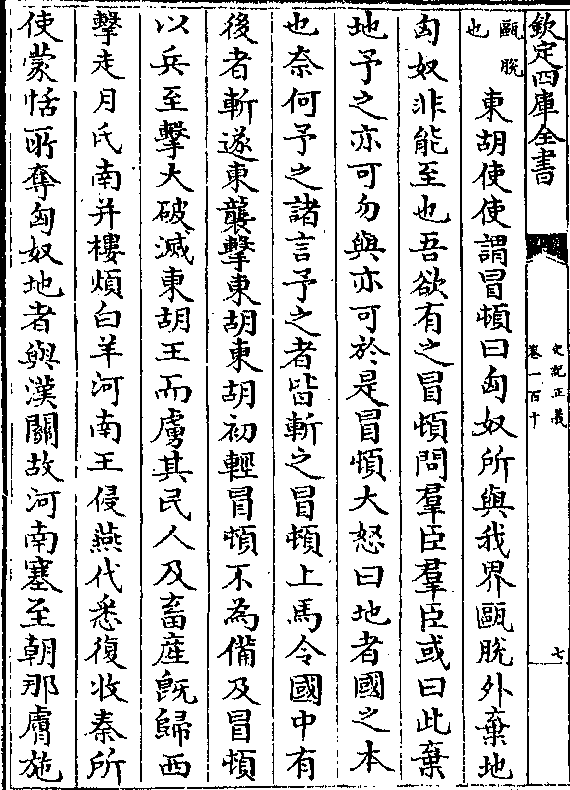 欽定四庫全書
史記正義
卷一百十
七
甌脫
也
東胡使使謂冒頓曰匈奴所與我界甌脫外棄地
匈奴非能至也吾欲有之冒頓問羣臣羣臣或曰此棄
地予之亦可勿與亦可於是冒頓大怒曰地者國之本
也奈何予之諸言予之者皆斬之冒頓上馬令國中有
後者斬遂東襲擊東胡東胡初輕冒頓不為備及冒頓
以兵至擊大破滅東胡王而虜其民人及畜産旣歸西
擊走月氏南并樓煩白羊河南王侵燕代悉復收秦所
使蒙恬所奪匈奴地者與漢關故河南塞至朝那膚施